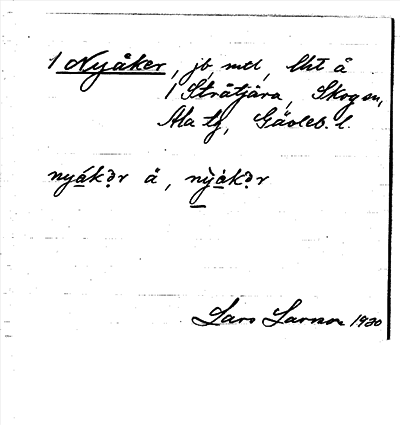 1 Nyåker, jb, med, lht å
1 Stråtjära, Skogen,
Ala tg, Gävleb. l.
nyákər å, nỳåkər
Lars Larsson 1930